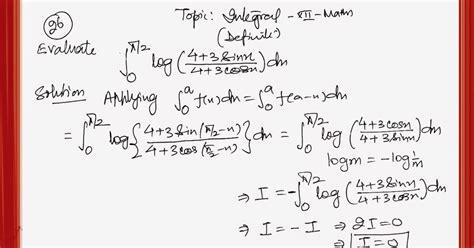 26
Topic: Integral - XII - Math
(Definite)
Evaluate ∫₀^(π/2) log((4+3sinx)/(4+3cosx))dx
Solution Applying ∫₀^a f(x)dx = ∫₀^a f(a-x)dx
= ∫₀^(π/2) log{(4+3sin(π/2-x))/(4+3cos(π/2-x))}dx = ∫₀^(π/2) log((4+3cosx)/(4+3sinx))dx
logm = -log 1/m
⇒ I = -∫₀^(π/2) log((4+3sinx)/(4+3cosx))dx
⇒ I = -I ⇒ 2I=0
⇒ I=0